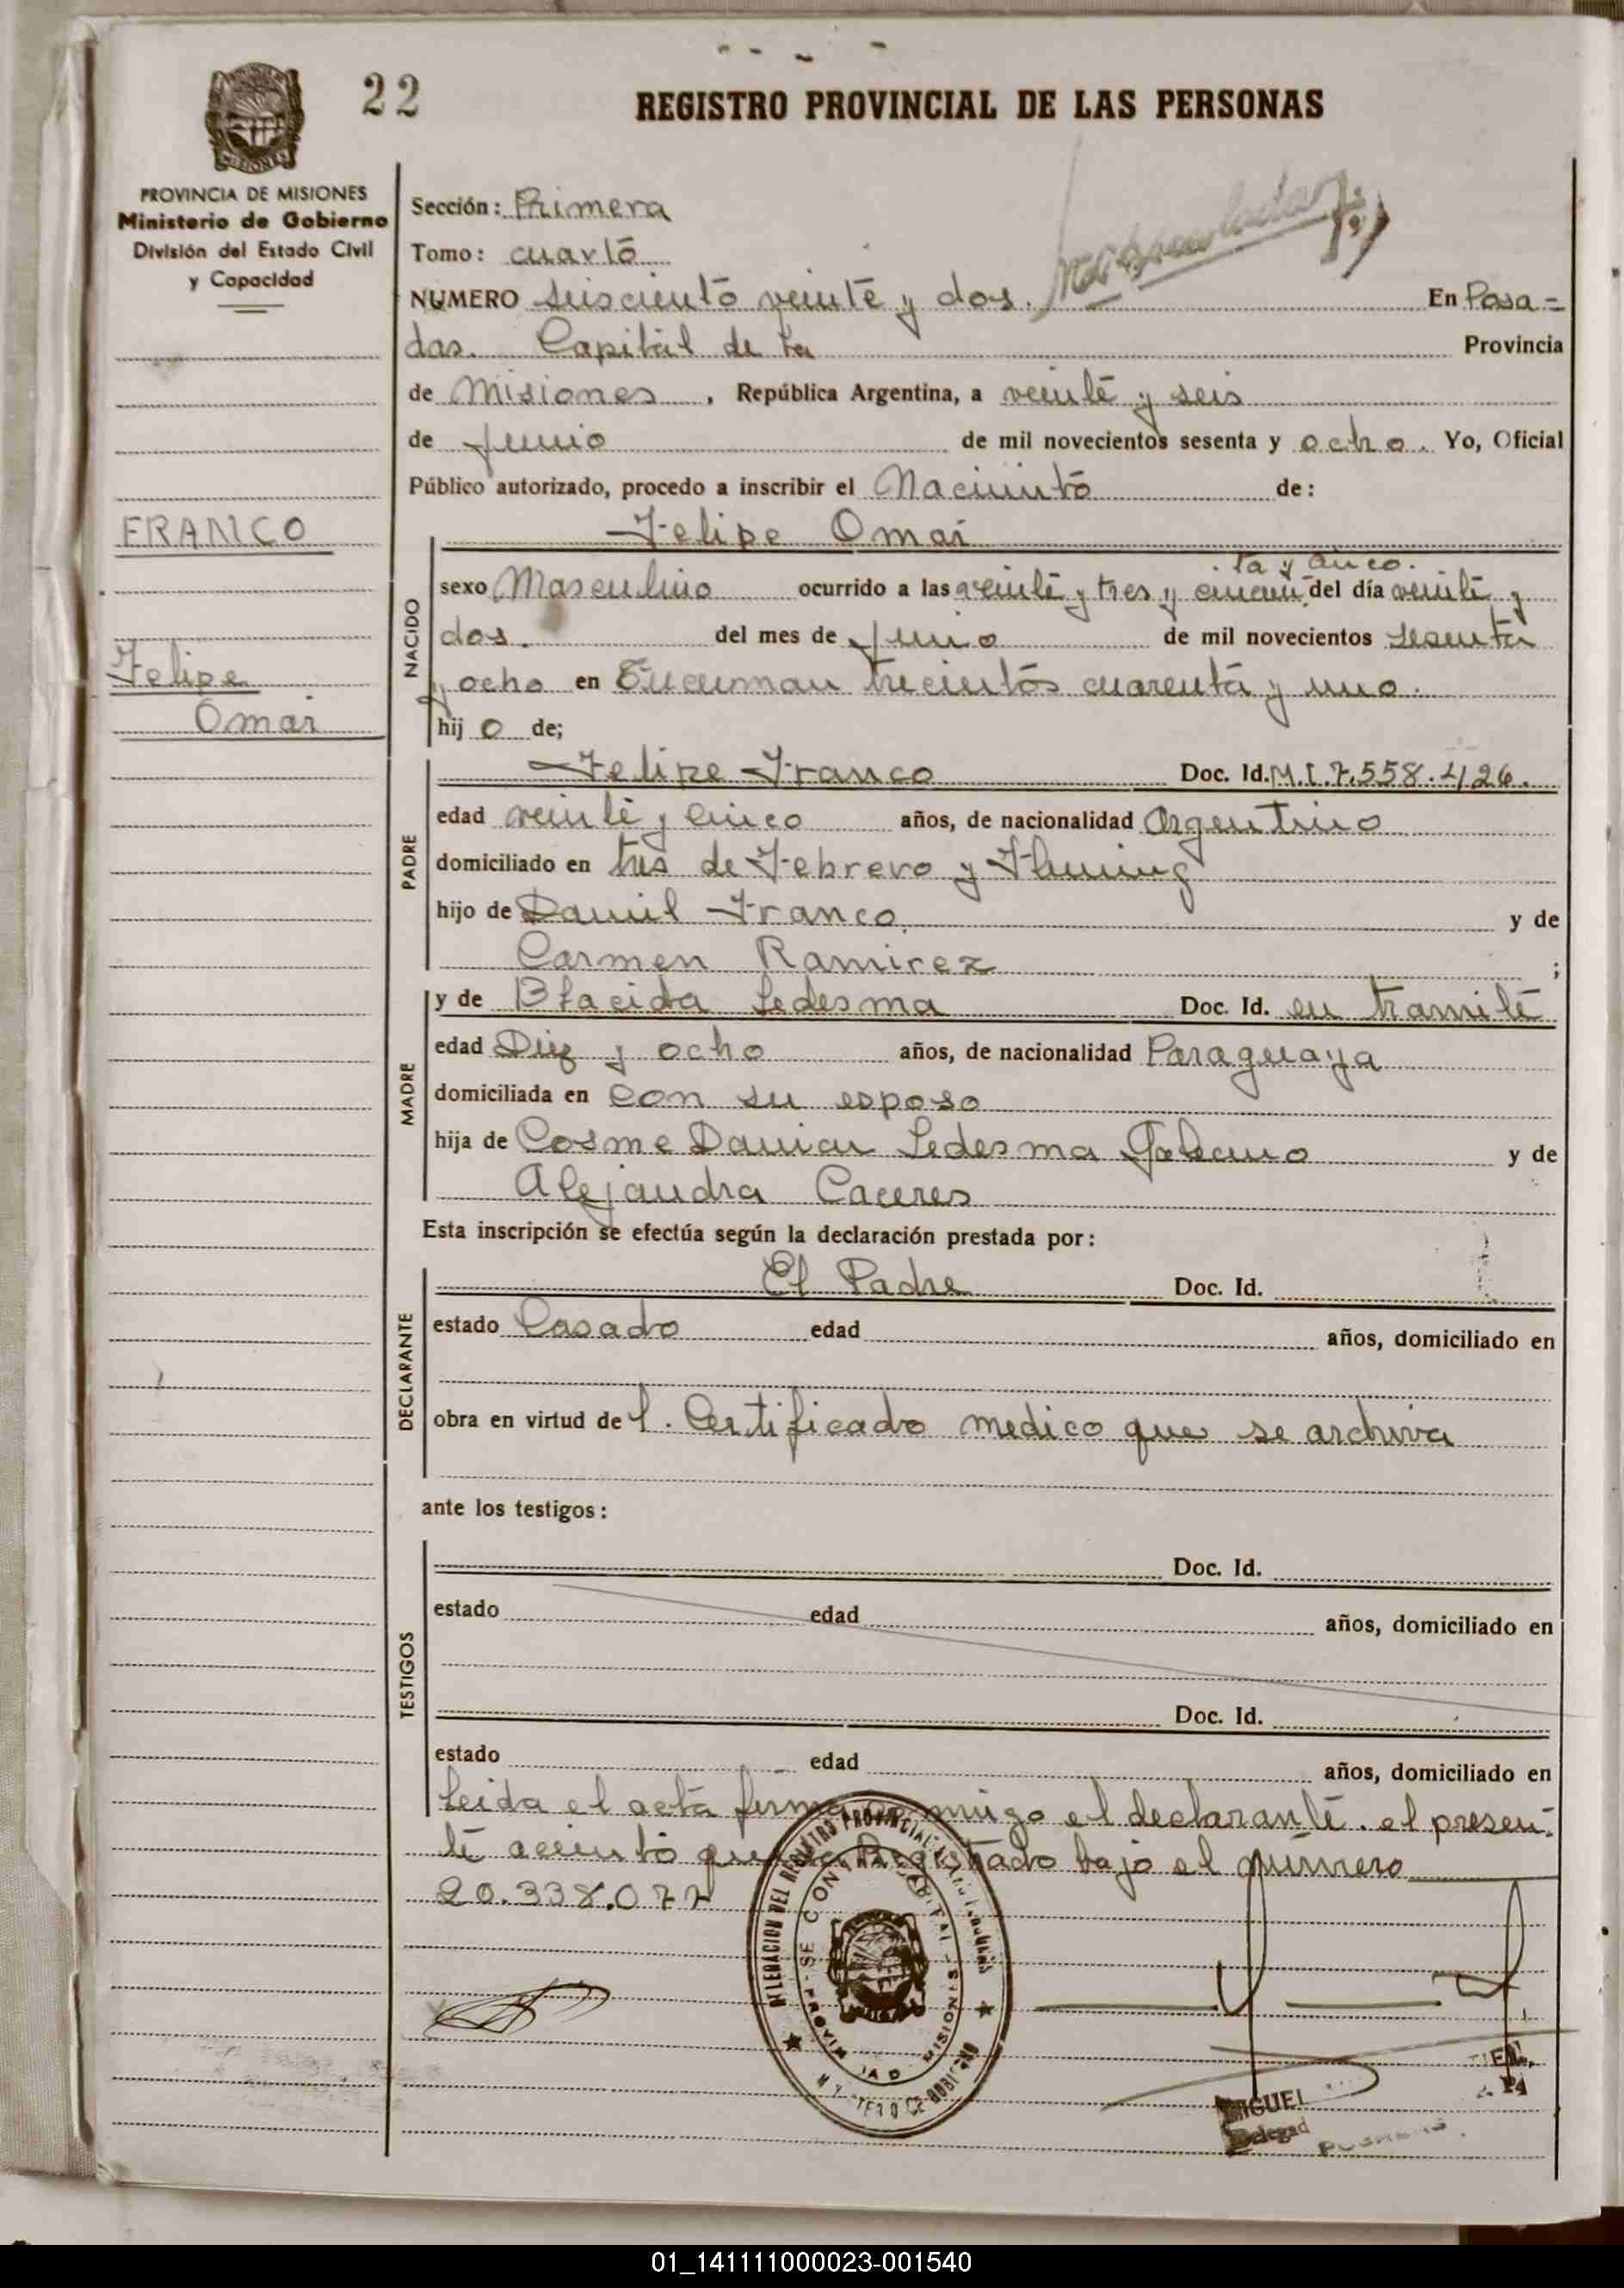 22
REGISTRO PROVINCIAL DE LAS PERSONAS
PROVINCIA DE MISIONES
Ministerio de Gobierno
División del Estado Civil
y Capacidad
Sección: Primera
Tomo: cuarto
NUMERO seisciento veinte y dos. En Posa=
das. Capital de la Provincia
de Misiones, República Argentina, a veinte y seis
de Junio de mil novecientos sesenta y ocho. Yo, Oficial
Público autorizado, procedo a inscribir el Nacimiento de:
FRANCO
Felipe Omar
ta y cinco.
NACIDO
sexo Masculino ocurrido a las veinte y tres y cincuen del día veinte y
dos. del mes de Junio de mil novecientos sesenta
y ocho en Tucuman trecientos cuarenta y uno.
Felipe
Omar
hijo de;
PADRE
Felipe Franco Doc. Id. M.I.7.558.426.
edad veinte y cinco años, de nacionalidad Argentino
domiciliado en tres de Febrero y Fleming
hijo de Daniel Franco y de
Carmen Ramirez ;
MADRE
y de Blacida Ledesma Doc. Id. en tramite
edad Diez y ocho años, de nacionalidad Paraguaya
domiciliada en con su esposo
hija de Cosme Damian Ledesma Galeano y de
Alejandra Caceres
Esta inscripción se efectúa según la declaración prestada por:
DECLARANTE
El Padre Doc. Id.
estado Casado edad años, domiciliado en
obra en virtud de l. Certificado medico que se archiva
ante los testigos:
TESTIGOS
Doc. Id.
estado edad años, domiciliado en
Doc. Id.
estado edad años, domiciliado en
Leida el acta firma conmigo el declarante. el presen-
te acciento queda Registrado bajo el número
20.338.077
MIGUEL
Delegad
01_141111000023-001540